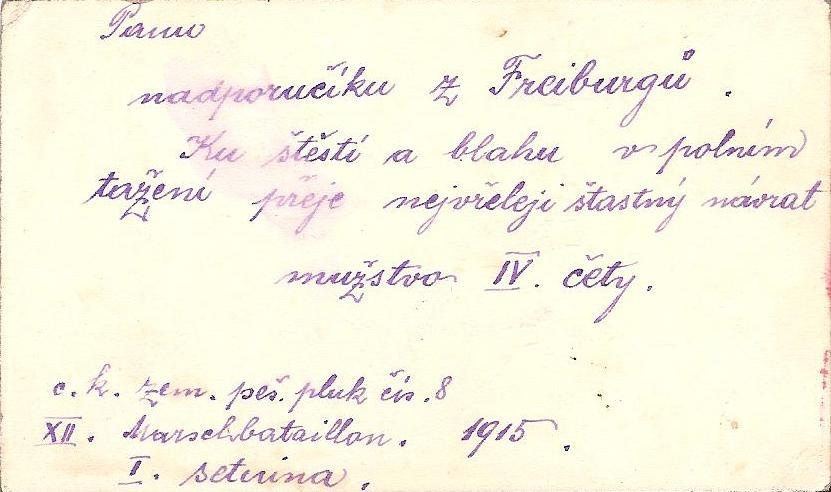 Panu
nadporučíku z Freiburgů.
Ku štěstí a blahu v polním
tažení přeje nejvřeleji šťastný návrat
mužstvo IV. čety.
c. k. zem. peš. pluk čís. 8
XII. Marschbataillon. 1915.
I. setnina.